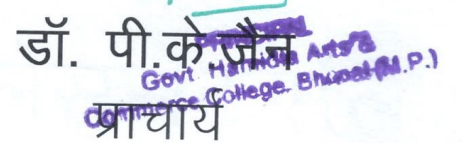 डॉ. पी.के.जैन
प्राचार्य
PRINCIPAL
Govt. Hamidia Arts &
Commerce College. Bhopal (M.P.)